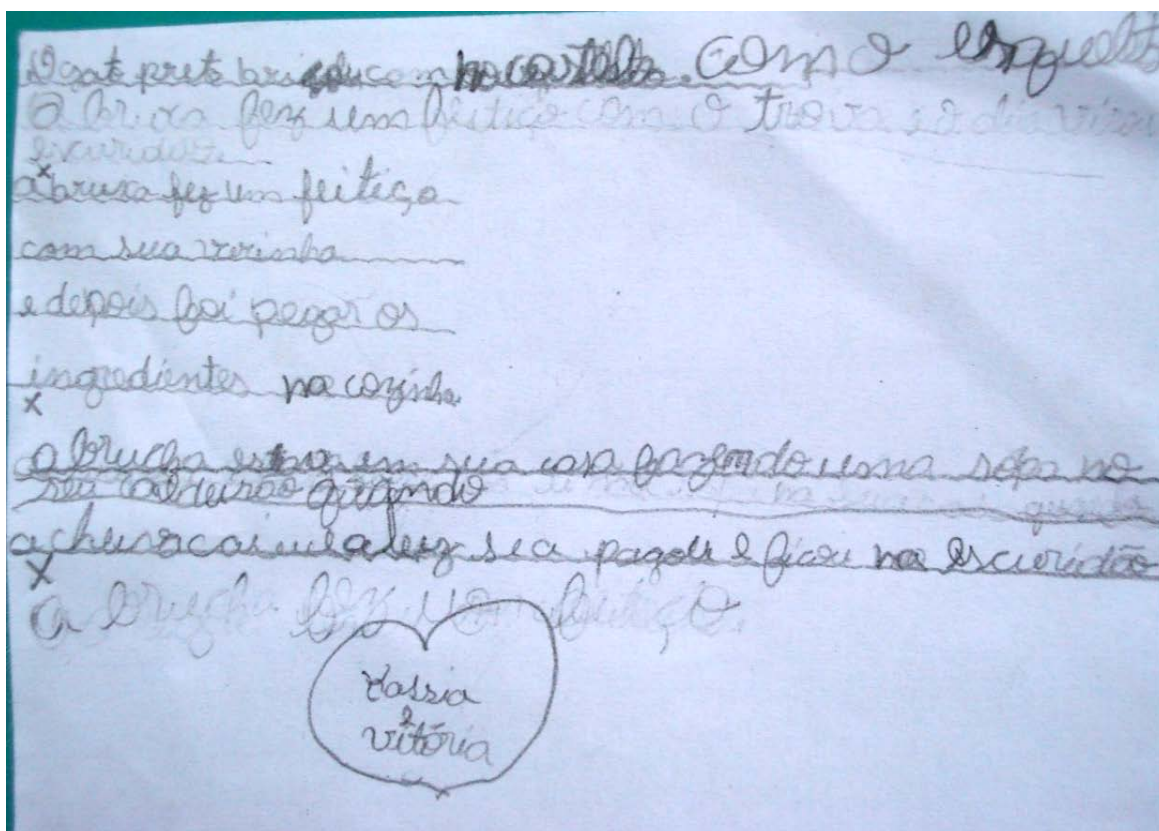 O gato preto brincou com na com o esquelet
A bruxa fez um feitiço com o trova e o dia virou
escuridão
a bruxa fez um feitiço
com sua varinha
e depois foi pegar os
ingredientes na cozinha
a brucha estava em sua casa fazendo uma sopa no
seu caldeirão quando
a chuva caiu a luz sea pagou e ficou na escuridão
a brucha fez um feitiço.
Kassia
e
vitória